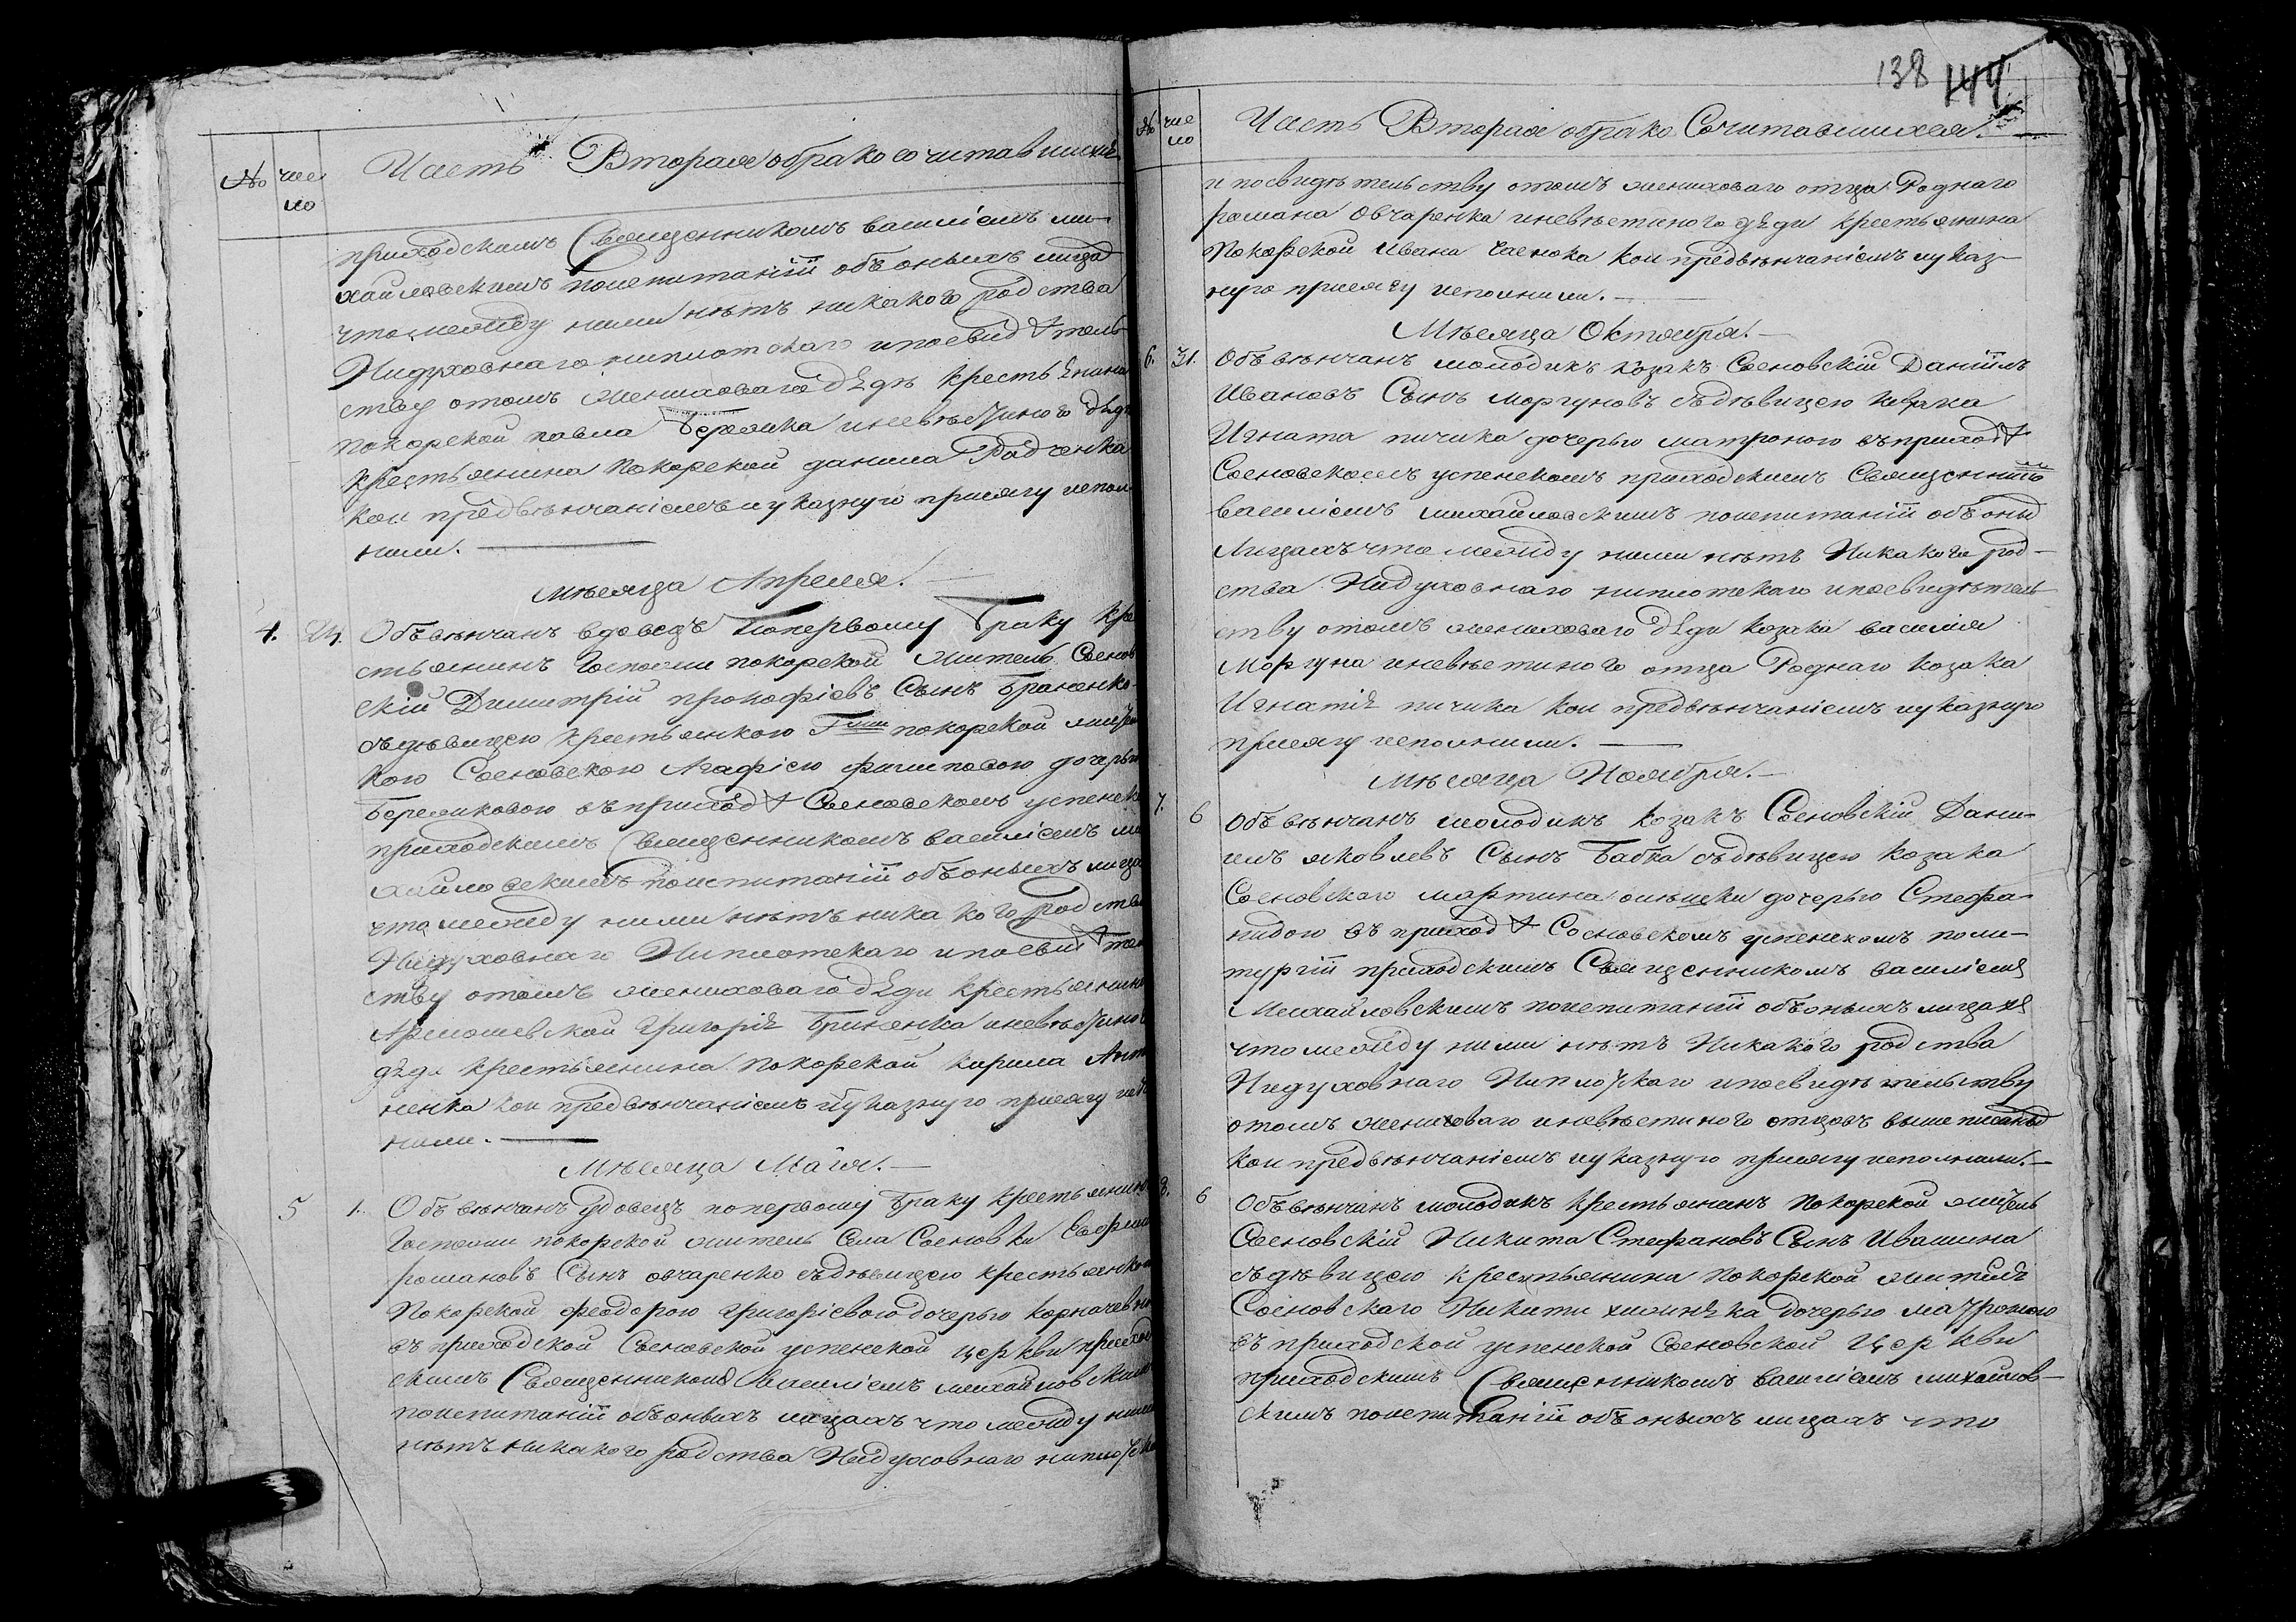 № число
Часть Вторая о бракосочитавшихся
приходскимъ Священникомъ василіемъ ми-
хайловскимъ поиспитаніи обоъныхъ лица
что между ними нѣтъ никакого родства
Нидуховнаго ниплотскаго ипосвидѣтель
ству отомъ жениховаго дѣда крестьянина
покорской павла Бережика иневѣстиного дѣда
крестьянина Покорской данила Радченка
кои предвѣнчаніемъ иуказную присягу испол
нили.
мѣсяца Апреля.
4. 24. Объвѣнчанъ вдовецъ Попервому Браку кре
стьянинъ Госпожи покорской житель Соснов
скій Димитрій прокофіевъ Сынъ Гриненко
съдѣвицею крестьянкою Гжи покорской житель
кою Сосновскою Агафіею филиповою дочерью
Бережиковою въприходѣ Сосновскомъ успенск
приходскимъ Священникомъ василіемъ ми
хайловскимъ поиспитаніи обоъныхъ лица
что между ними нѣтъ никакого родства
Нидуховнаго Ниплотскаго ипосвидѣтел
ству отомъ жениховаго дѣда крестьянина
Григоріѣ Гриненка иневѣстино
дѣда крестьянина Покорской кирила Анто
ненка кои предвѣнчаніемъ иуказную присягу испо
нили.
Мѣсяца Маія.
5 1. Объвѣнчанъ Удовецъ попервому браку крестьянинъ
Госпожи покорской житель Села Сосновки Ефрем
романовъ Сынъ овчаренко съдѣвицею крестьянкою
Покорской феодорою григоріевою дочерью
въприходской Сосновской успенской церкви приход
скимъ Священникомъ василіемъ михайловским
поиспитаніи обоъныхъ лицахъ что между ними
нѣтъ никакого родства Нидуховнаго ниплотска
138 144
№ число
Часть Вторая обрако Сочитавшихся.
и посвидѣтельству отомъ жениховаго отца Роднаго
романа Овчаренка иневѣстиного дѣди крестьянина
Покорской Ивана кои предвѣнчаніемъ иуказ-
ную присягу исполнили.
Мѣсяца Октября.
6. 31. Объвѣнчанъ молодикъ козакъ Сосновскій Даніилъ
Ивановъ Сынъ моргуновъ съдѣвицею козака
Игната пичика дочерью матроною въприходѣ
Сосновскомъ успенскомъ приходскимъ Священнико
василіемъ михайловскимъ поиспитаніи объоных
Лицахъ что между ними нѣтъ Никакого род-
ства Нидуховнаго ниплотскаго ипосвидѣтель
ству отомъ жениховаго дѣди козака василия
Моргуна иневѣстиного отца Роднаго козака
Игнатіѣ пичика кои предвѣнчаніемъ иуказную
присягу исполнили.
Мѣсяца Ноября.
7. 6 Объвѣнчанъ молодикъ козакъ Сосновскій Дани-
илъ яковлевъ Сынъ Бабка съдѣвицею козака
Сосновского мартина дочерью Стефа-
нидою въ приходѣ Сосновскомъ успенскомъ поли-
тургіи приходскимъ Священникомъ василіемъ
Михайловскимъ поиспитаніи обоъныхъ лицахъ
что между ними нѣтъ Никакого родства
Нидуховнаго Ниплотскаго ипосвидѣтельству
отомъ жениховаго иневѣстиного отцовъ вышеписаных
кои предвѣнчаніемъ иуказную присягу исполнили.
8. 6 Объвѣнчанъ молодикъ крестьянинъ Покорской житель
Сосновскій Никита Стефановъ Сынъ Ивашина
съдѣвицею крестьянина Покорской жителѣ
Сосновскаго Никити дочерью матроною
въприходской успенской Сосновской Церкви
приходскимъ Священникомъ василіемъ михайлов-
скимъ поиспитаніи объоныхъ лицахъ что